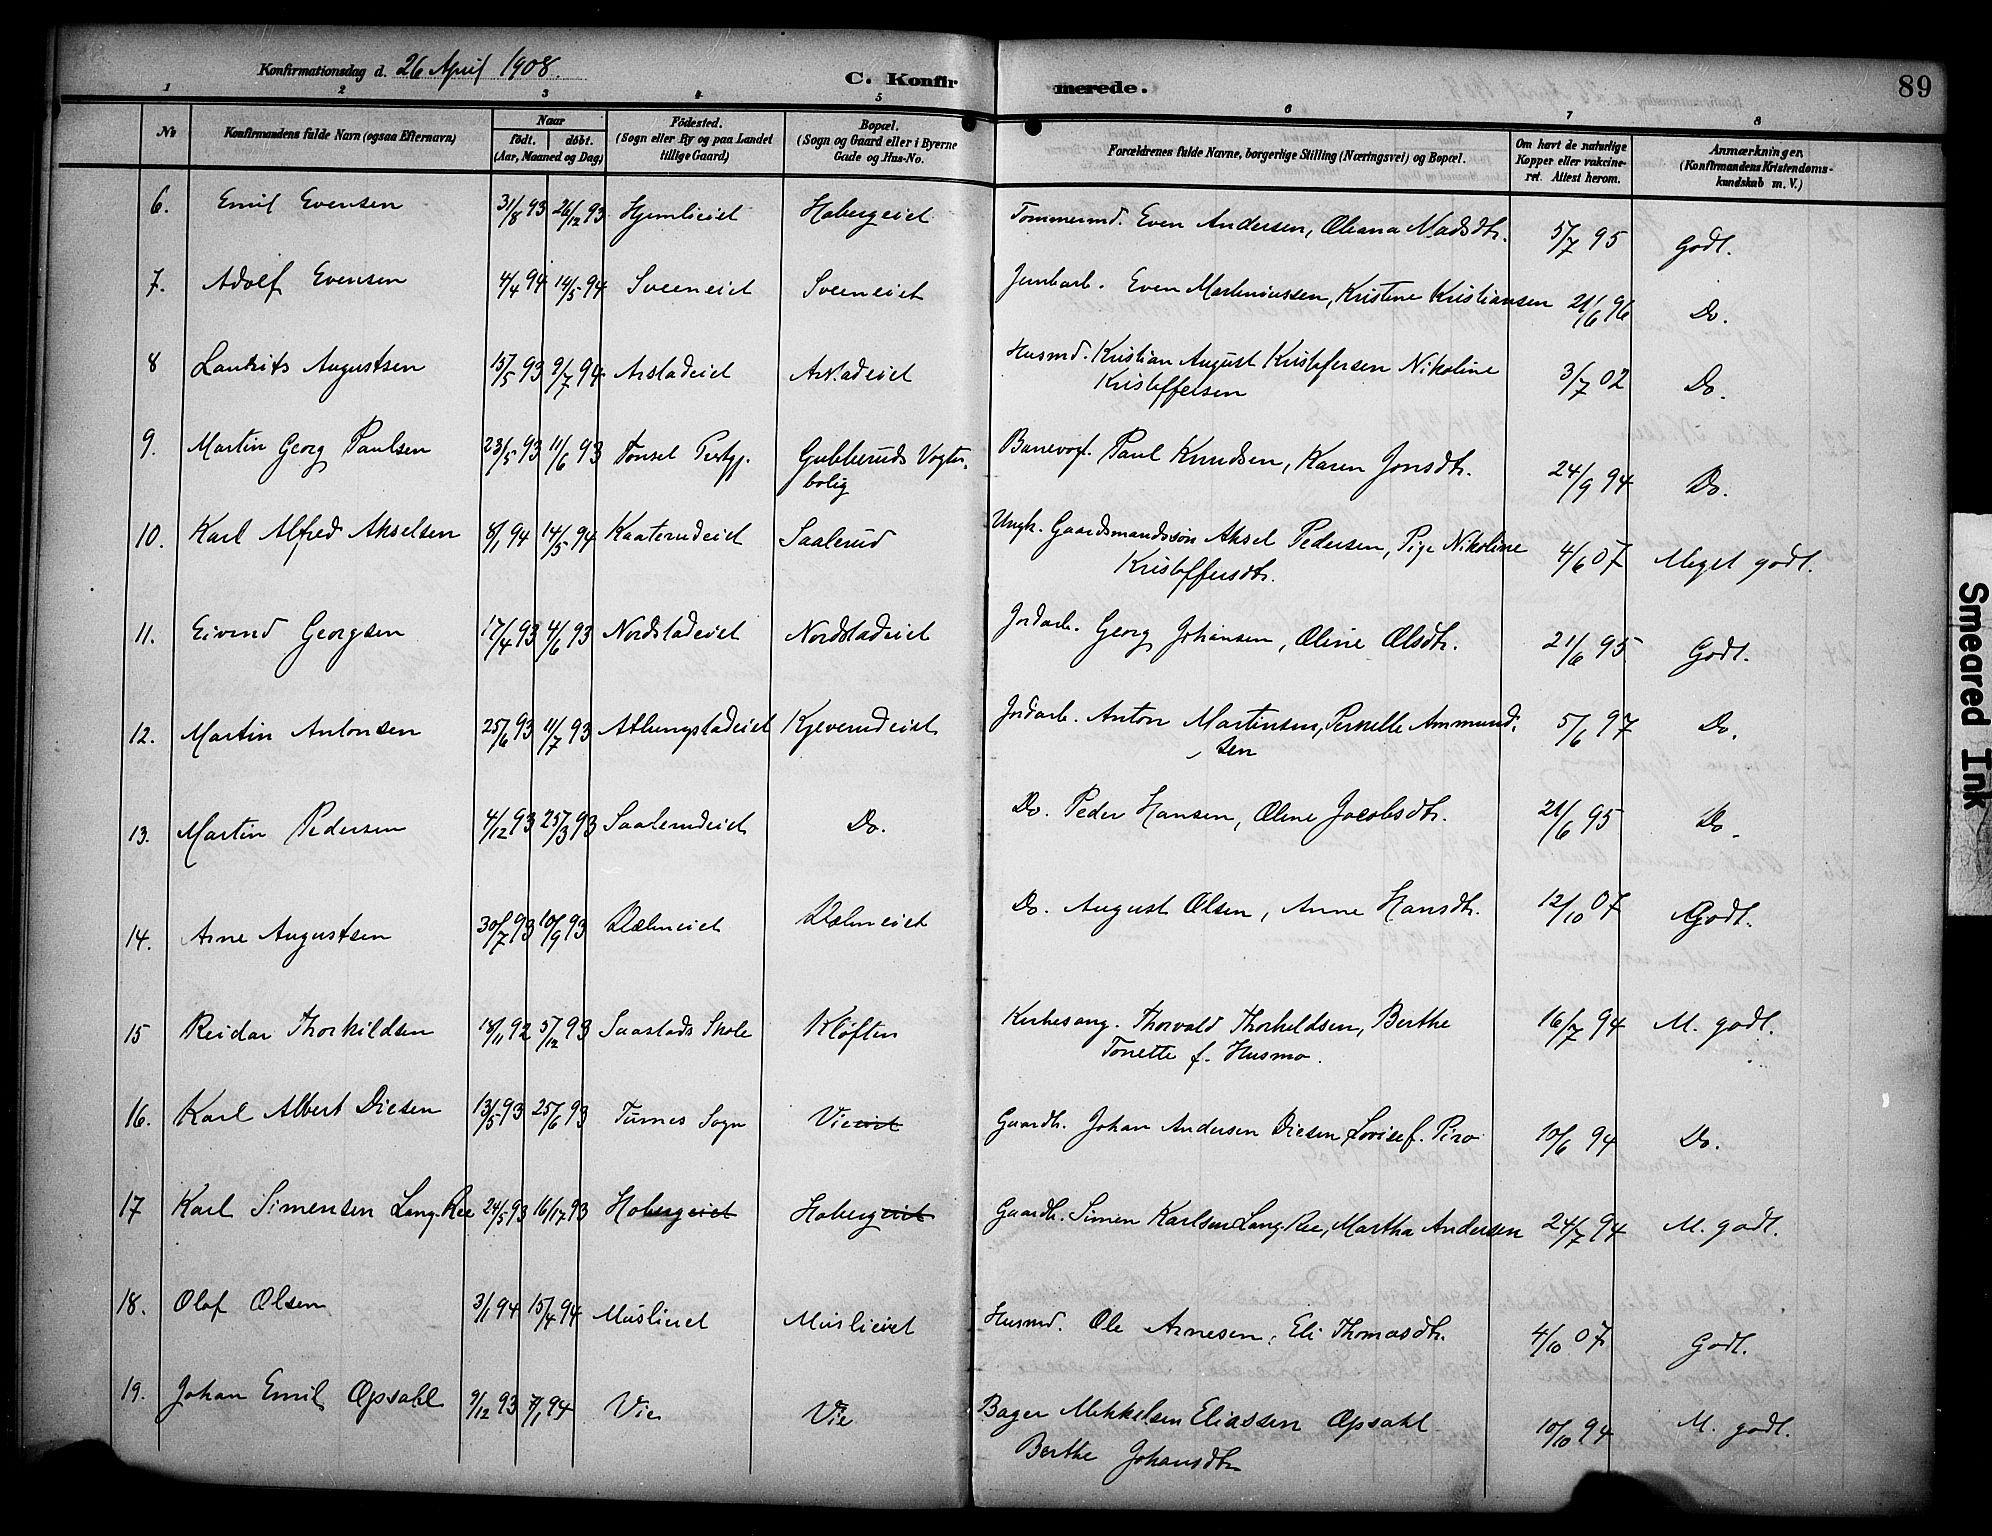 Konfirmationsdag d. 26 April 1908.
C. Konfirmerede.
89
1 2 3 4 5 6 7 8
No
Konfirmandens fulde Navn (ogsaa Efternavn)
Naar
født. døbt.
(Aar, Maaned og Dag)
Fødested.
(Sogn eller By og paa Landet
tillige Gaard)
Bopæl.
(Sogn og Gaard eller i Byerne
Gade og Hus-No.
Forældrenes fulde Navne, borgerlige Stilling (Næringsvei) og Bopæl.
Om havt de naturlige
Kopper eller vakcine-
ret. Attest herom.
Anmærkninger.
(Konfirmandens Kristendoms-
kundskab m. V.)
6. Emil Evensen 31/8 93 26/12 93 Hjemlieiet Hobergeiet Tømmermd. Even Andersen, Oleana Madsdtr. 5/7 95 Godt.
7. Adolf Evensen 4/4 94 14/5 94 Sveeneiet Sveeneiet Jernbarb. Even Martiniussen, Kristine Kristiansen 21/6 96 Do.
8 Lauritz Augustsen 15/5 93 9/7 94 Arstadeiet Arstadeiet Husmd. Kristian August Kristofersen Nikoline
Kristoffersen 3/7 02 Do.
9. Martin Georg Paulsen 23/5 93 11/6 93 Tønset Prstgj. Gubberuds Vogter-
bolig Banevogt. Paul Knudsen, Karen Jonsdtr. 24/9 94 Do.
10. Karl Alfred Akselsen 8/1 94 14/5 94 Kaaterudeiet Saalerud Ungk. Gaardmandssøn Aksel Pedersen, Pige Nikoline
Kristoffersdtr. 4/6 07 Meget godt.
11. Eivind Georgsen 17/4 93 4/6 93 Nordstadeiet Nordstadeiet Jordarb. Georg Johansen, Oline Olsdtr. 21/6 95 Godt.
12. Martin Antonsen 25/6 93 11/7 93 Atlungstadeiet Kjeverudeiet Jordarb. Anton Martinsen, Pernelle Ammund-
sen 5/6 97 Do.
13. Martin Pedersen 4/12 93 25/3 93 Saalerudeiet Do. Do. Peder Hansen, Oline Jacobsdtr. 21/6 95 Do.
14. Arne Augustsen 30/7 93 10/9 93 Do. August Olsen, Anne Hansdtr. 12/10 07 Godt.
15 Reidar Thorkildsen 18/11 92 5/12 93 Saastads Skole Kløften Kirkesang. Thorvald Thorkildsen, Berthe
Tonette f. Husmo. 16/7 94 M. godt.
16. Karl Albert Diesen 13/5 93 25/6 93 Furnes Sogn Vieeiet Gaardb. Johan Andersen Diesen, Lovise f. Piro 10/6 94 Do.
17 Karl Simensen Lang-Ree 24/5 93 16/17 93 Hobergeiet Hobergeiet Gaardb. Simen Karlsen Lang Ree, Martha Andersen 24/7 94 M. godt.
18. Olaf Olsen 3/1 94 15/4 94 Muslieiet Muslieiet Husmd. Ole Arnesen, Eli Thomasdtr. 4/10 07 Godt.
19. Johan Emil Opsahl 9/12 93 7/1 94 Vie Vie Bager Mikkelsen Eliassen Opsahl
Berthe Johansdtr 10/10 94 M. godt.
Smeared Ink